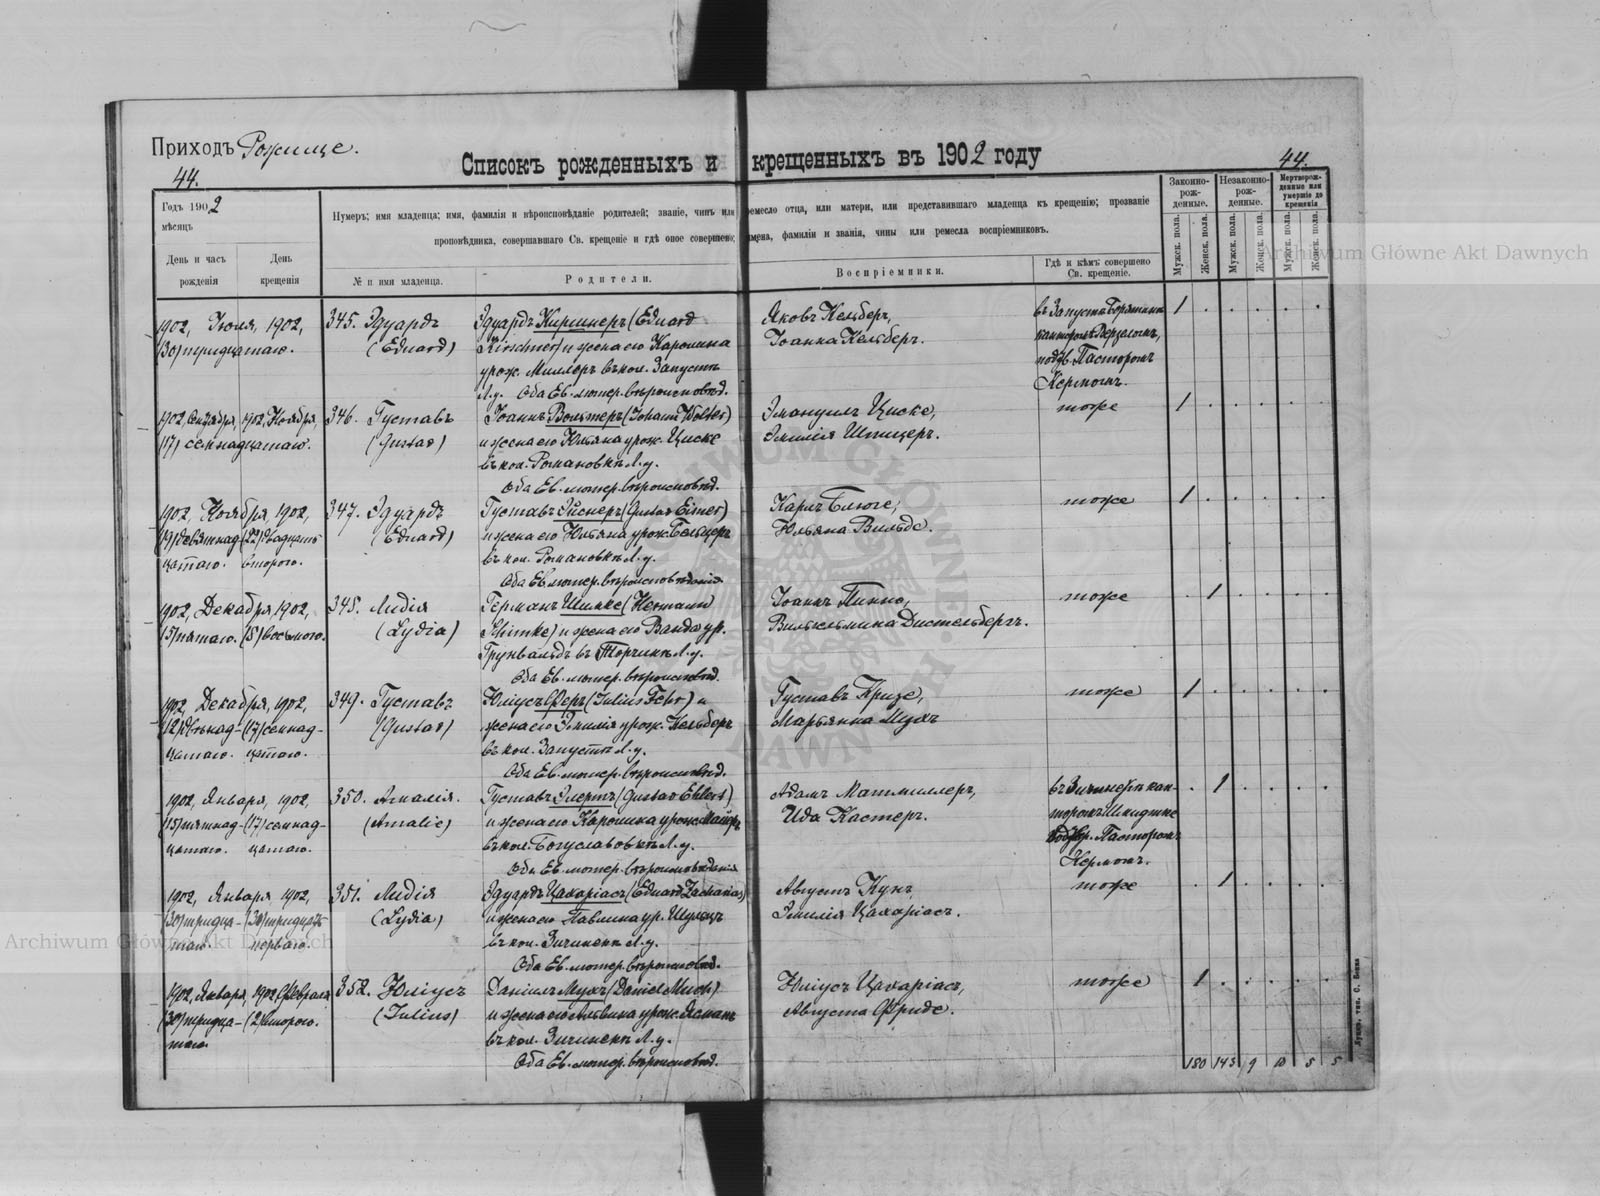 Приходъ Рожище.
44.
Списокъ рожденныхъ и крещенныхъ въ 1902 году
44.
Годъ 1902
мѣсяцъ
День и часъ рожденія
День крещенія
Нумеръ; имя младенца; имя, фамилія и вѣроисповѣданіе родителей; званіе, чинъ или ремесло отца, или матери, или представившаго младенца къ крещенію; прозваніе
проповѣдника, совершавшаго Св. крещеніе и гдѣ оное совершено; имена, фамиліи и званія, чины или ремесла воспріемниковъ.
№ и имя младенца.
Родители.
Воспріемники.
Гдѣ и кѣмъ совершено Св. крещеніе.
Законно-рож-денные.
Незаконно-рож-денные.
Мертворож-денные или умершіе до крещенія
Мужск. пола.
Женск. пола.
Мужск. пола.
Женск. пола.
Мужск. пола.
Женск. пола.
1902, Іюля, 1902,
(30) тридцатаго.
345. Эдуардъ
(Eduard)
Эдуардъ Киршнеръ (Eduard
Kirschner) и жена его Каролина
урож. Миллеръ въ кол. Запустъ
Л.у. Оба Ев. лютер. вѣроисповѣд.
Яковъ Кельберъ,
Іоанна Кельберъ.
въ Запустѣ
Пасторомъ
Кермомъ.
1
1902, Сентября, 1902, Ноября,
(17) семнадцатаго.
346. Густавъ
(Gustav)
Іоаннъ Вольтеръ (Johann Wolter)
и жена его Юльяна урож. Циске
въ кол. Романовкѣ Л.у.
Оба Ев. лютер. вѣроисповѣд.
Эмануилъ Циске,
Эмилія Шпицеръ.
тоже
1
1902, Ноября, 1902,
(19) девятнад- (22) двадцать
цатаго. второго.
347. Эдуардъ
(Eduard)
Густавъ Эйснеръ (Gustav Eisner)
и жена его Юльяна урож. Бельцеръ
въ кол. Романовкѣ Л.у.
Оба Ев. лютер. вѣроисповѣданія
Карлъ Блюге,
Юльяна Вильде.
тоже
1
1902, Декабря, 1902,
(5) пятаго. (8) восьмого.
348. Лидія
(Lydia)
Германъ Шимке (Hermann
Schimke) и жена его Ванда ур.
Грунвальдъ въ Торчинѣ Л.у.
Оба Ев. лютер. вѣроисповѣд.
Іоаннъ Пинно,
Вильгельмина Дистельбергъ.
тоже
1
1902, Декабря, 1902,
(12) двѣнад- (17) семнад-
цатаго. цатаго.
349. Густавъ
(Gustav)
Юліусъ Феръ (Julius Fehr) и
жена его Эмилія урож. Кельберъ
въ кол. Запустъ Л.у.
Оба Ев. лютер. вѣроисповѣд.
Густавъ Кризе,
Марьянна Мухъ
тоже
1
1902, Января, 1902,
(15) пятнад- (17) семнад-
цатаго. цатаго.
350. Амалія.
(Amalie)
Густавъ Элертъ (Gustav Ehlert)
и жена его Каролина урож. Майеръ
въ кол. Богуславовкѣ Л.у.
Оба Ев. лютер. вѣроисповѣданія
Адамъ Матмиллеръ,
Ида Кастеръ.
кан-
торомъ
Пасторомъ
Кермомъ.
1
1902, Января, 1902,
(30) тридца- (31) тридцать
таго. перваго.
351. Лидія
(Lydia)
Эдуардъ Цахаріасъ (Eduard Zacharias)
и жена его Павлина ур. Шульцъ
въ кол. Зичинекъ Л.у.
Оба Ев. лютер. вѣроисповѣд.
Августъ Кунъ,
Эмилія Цахаріасъ.
тоже
1
1902, Января, 1902, Февраля
(30) тридца- (2) второго.
таго.
352. Юліусъ
(Julius)
Даніилъ Мухъ (Daniel Much)
и жена его Альвина урож. Ясманъ
въ кол. Зичинекъ Л.у.
Оба Ев. лютер. вѣроисповѣд.
Юліусъ Цахаріасъ,
Августа Фриде.
тоже
1
180 143 9 10 5 5
Archiwum Główne Akt Dawnych
Archiwum Główne Akt Dawnych
ARCHIWUM GŁÓWNE AKT DAWNYCH